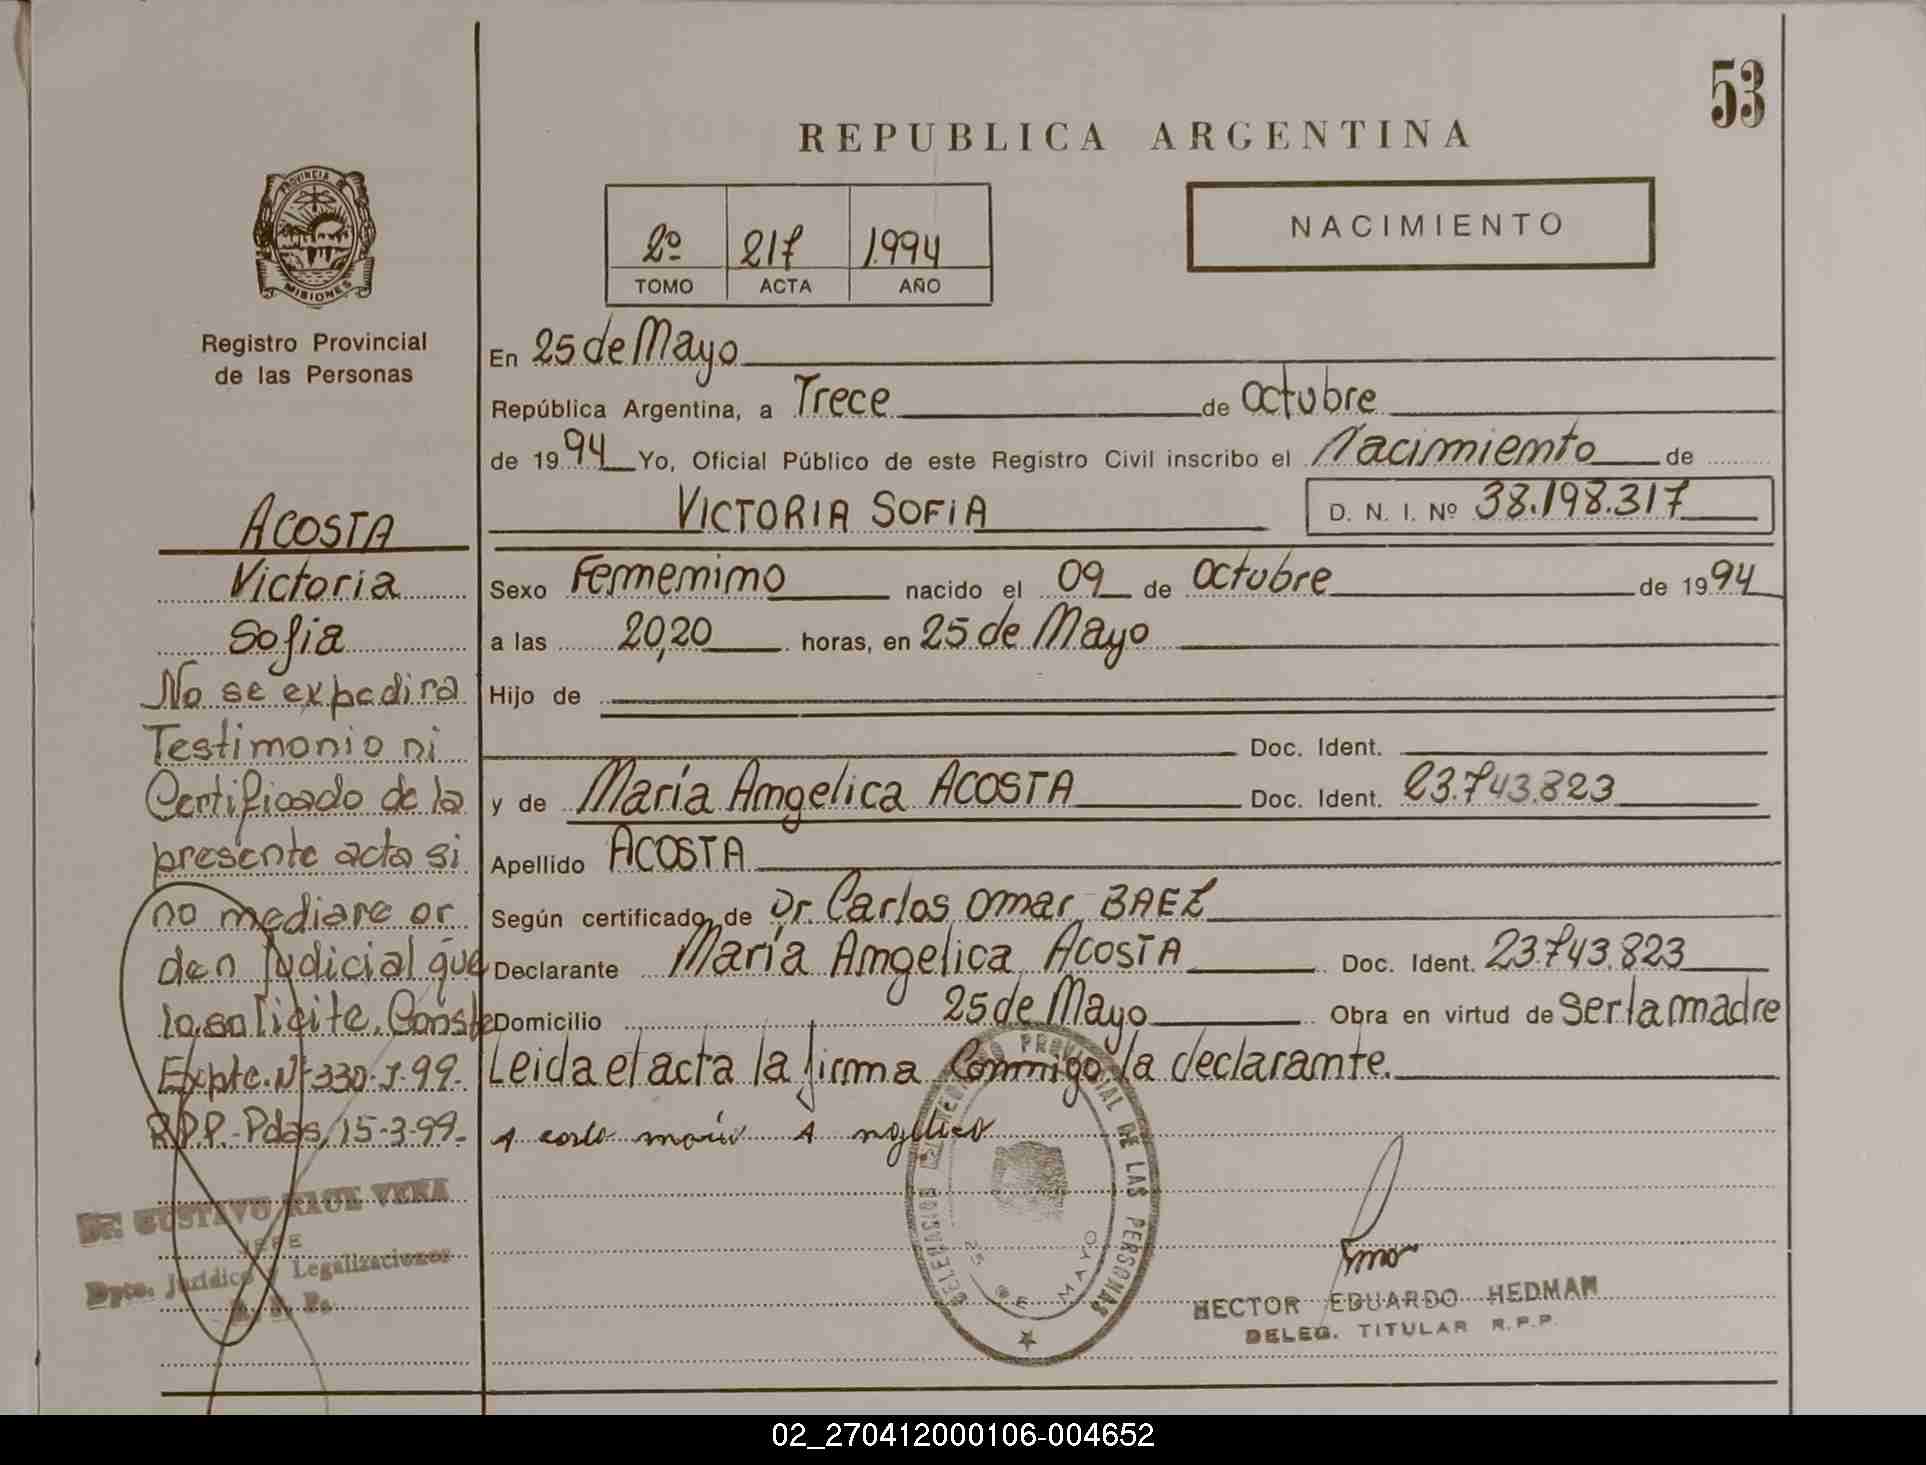 53
REPUBLICA ARGENTINA
PROVINCIA DE
MISIONES
Registro Provincial
de las Personas
2º 217 1994
TOMO ACTA AÑO
NACIMIENTO
En 25 de Mayo
República Argentina, a Trece de octubre
de 1994 Yo, Oficial Público de este Registro Civil inscribo el Nacimiento de
VICTORIA SOFIA D. N. I. Nº 38.198.317
Sexo Femenino nacido el 09 de octubre de 1994
a las 20,20 horas, en 25 de Mayo
Hijo de
Doc. Ident.
y de María Angelica ACOSTA Doc. Ident. 23.743.823
Apellido ACOSTA
Según certificado de Dr. Carlos Omar BAEZ
Declarante María Angelica ACOSTA Doc. Ident. 23.743.823
Domicilio 25 de Mayo Obra en virtud de ser la madre
Leida el acta la firma Conmigo la declarante.
ACOSTA
Victoria
Sofia
No se expedira
Testimonio ni
Certificado de la
presente acta si
no mediare or
den Judicial que
lo solicite. Conste
Expte. Nº 330-J-99-
R.P.P.-Pdas, 15-3-99-
Dr. GUSTAVO RAUL VERA
JEFE
Dpto. Jurídico y Legalizaciones
R. P. P.
PROVINCIAL DE LAS PERSONAS
25 DE MAYO
HECTOR EDUARDO HEDMAN
DELEG. TITULAR R.P.P.
02_270412000106-004652